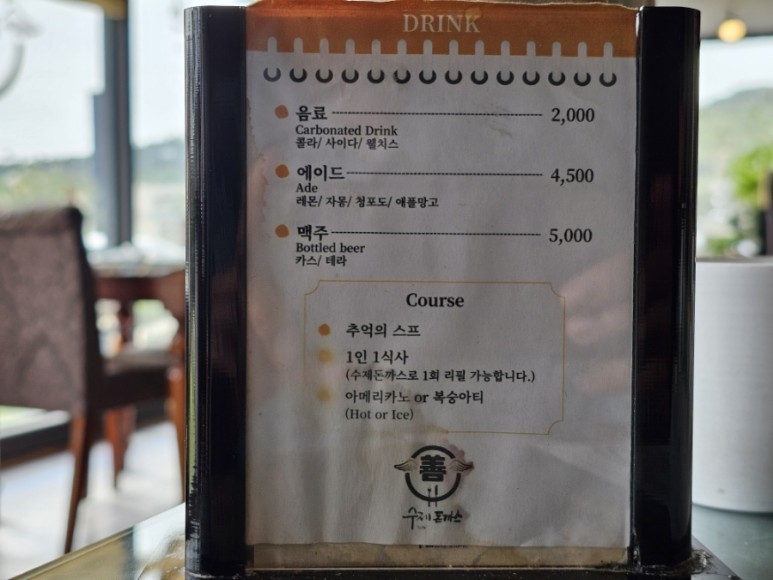 DRINK
음료 2,000
Carbonated Drink
콜라/ 사이다/ 웰치스
에이드 4,500
Ade
레몬/ 자몽/ 청포도/ 애플망고
맥주 5,000
Bottled beer
카스/ 테라
Course
추억의 스프
1인 1식사
(수제돈까스로 1회 리필 가능합니다.)
아메리카노 or 복숭아티
(Hot or Ice)
善
수제 돈까스